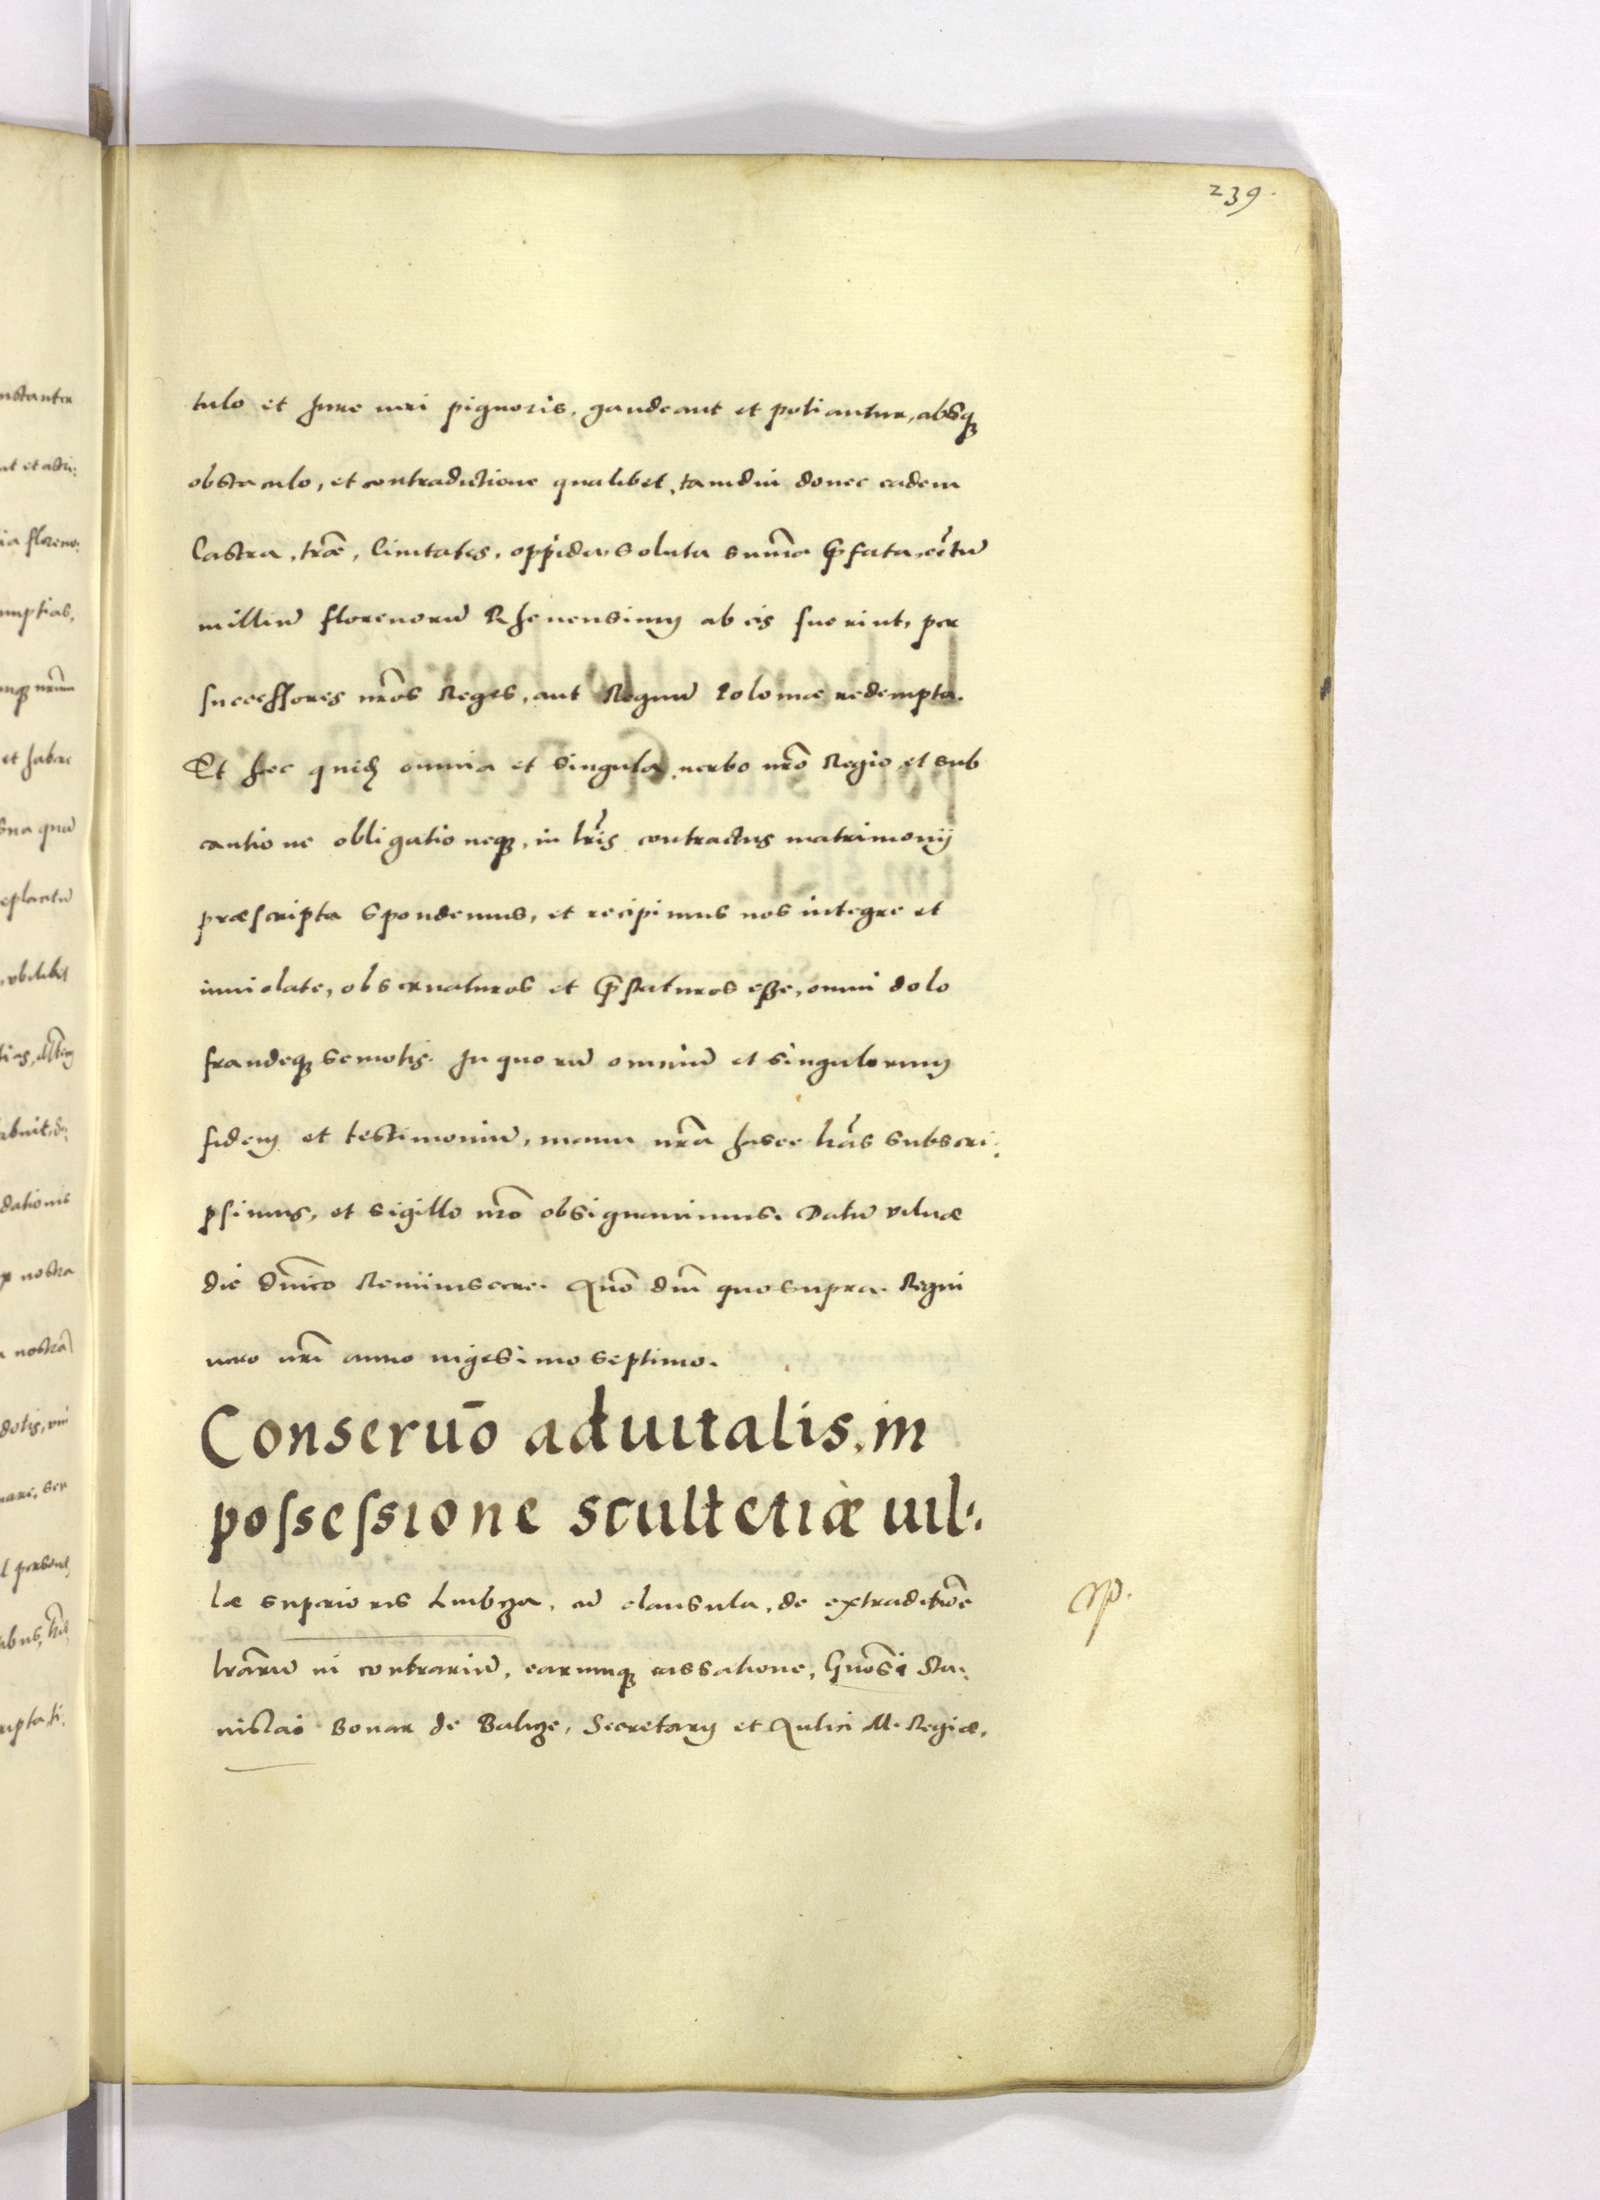 239.
tulo et Jure veri pignoris, gaudeant et potiantur, absq̢
obstaculo, et contradictione qualibet, tamdiu donec eadem
Castra, trae, Ciuitates, oppida, soluta summa p̄fata, centū
milliū florenorū Rhenensium ab eis fuerint, per
successores nr̄os Reges, aut Regnū Poloniae redempta.
Et haec quidē omnia et singula, uerbo nr̄o Regio, et sub
cautione obligationeq̢, in lr̄is contractus matrimonij
praescripta spondemus, et recipimus nos integre et
inuiolate, obseruaturos et p̄staturos esse, omni dolo
fraudeq̢ semotis. In quorū omniū et singulorum
fidem et testimoniū, manu nr̄a hasce lr̄as subscri:
psimus, et sigillo nr̄o obsignauimus. Datū Vilnae
die dn̄ico Reminiscere. Anō dn̄i quo supra. Regni
uero nr̄i anno uigesimo septimo.
Conseruō aduitalis, in
possessione scultetiae uil:
lae superioris Lubcza, cū clausula, de extraditiōe
lrārū in contrariū, earumq̢ cassatione, Gnōsi Sta:
nislai Bonar de Balicze, Secretarij et Aulici M. Regiae,